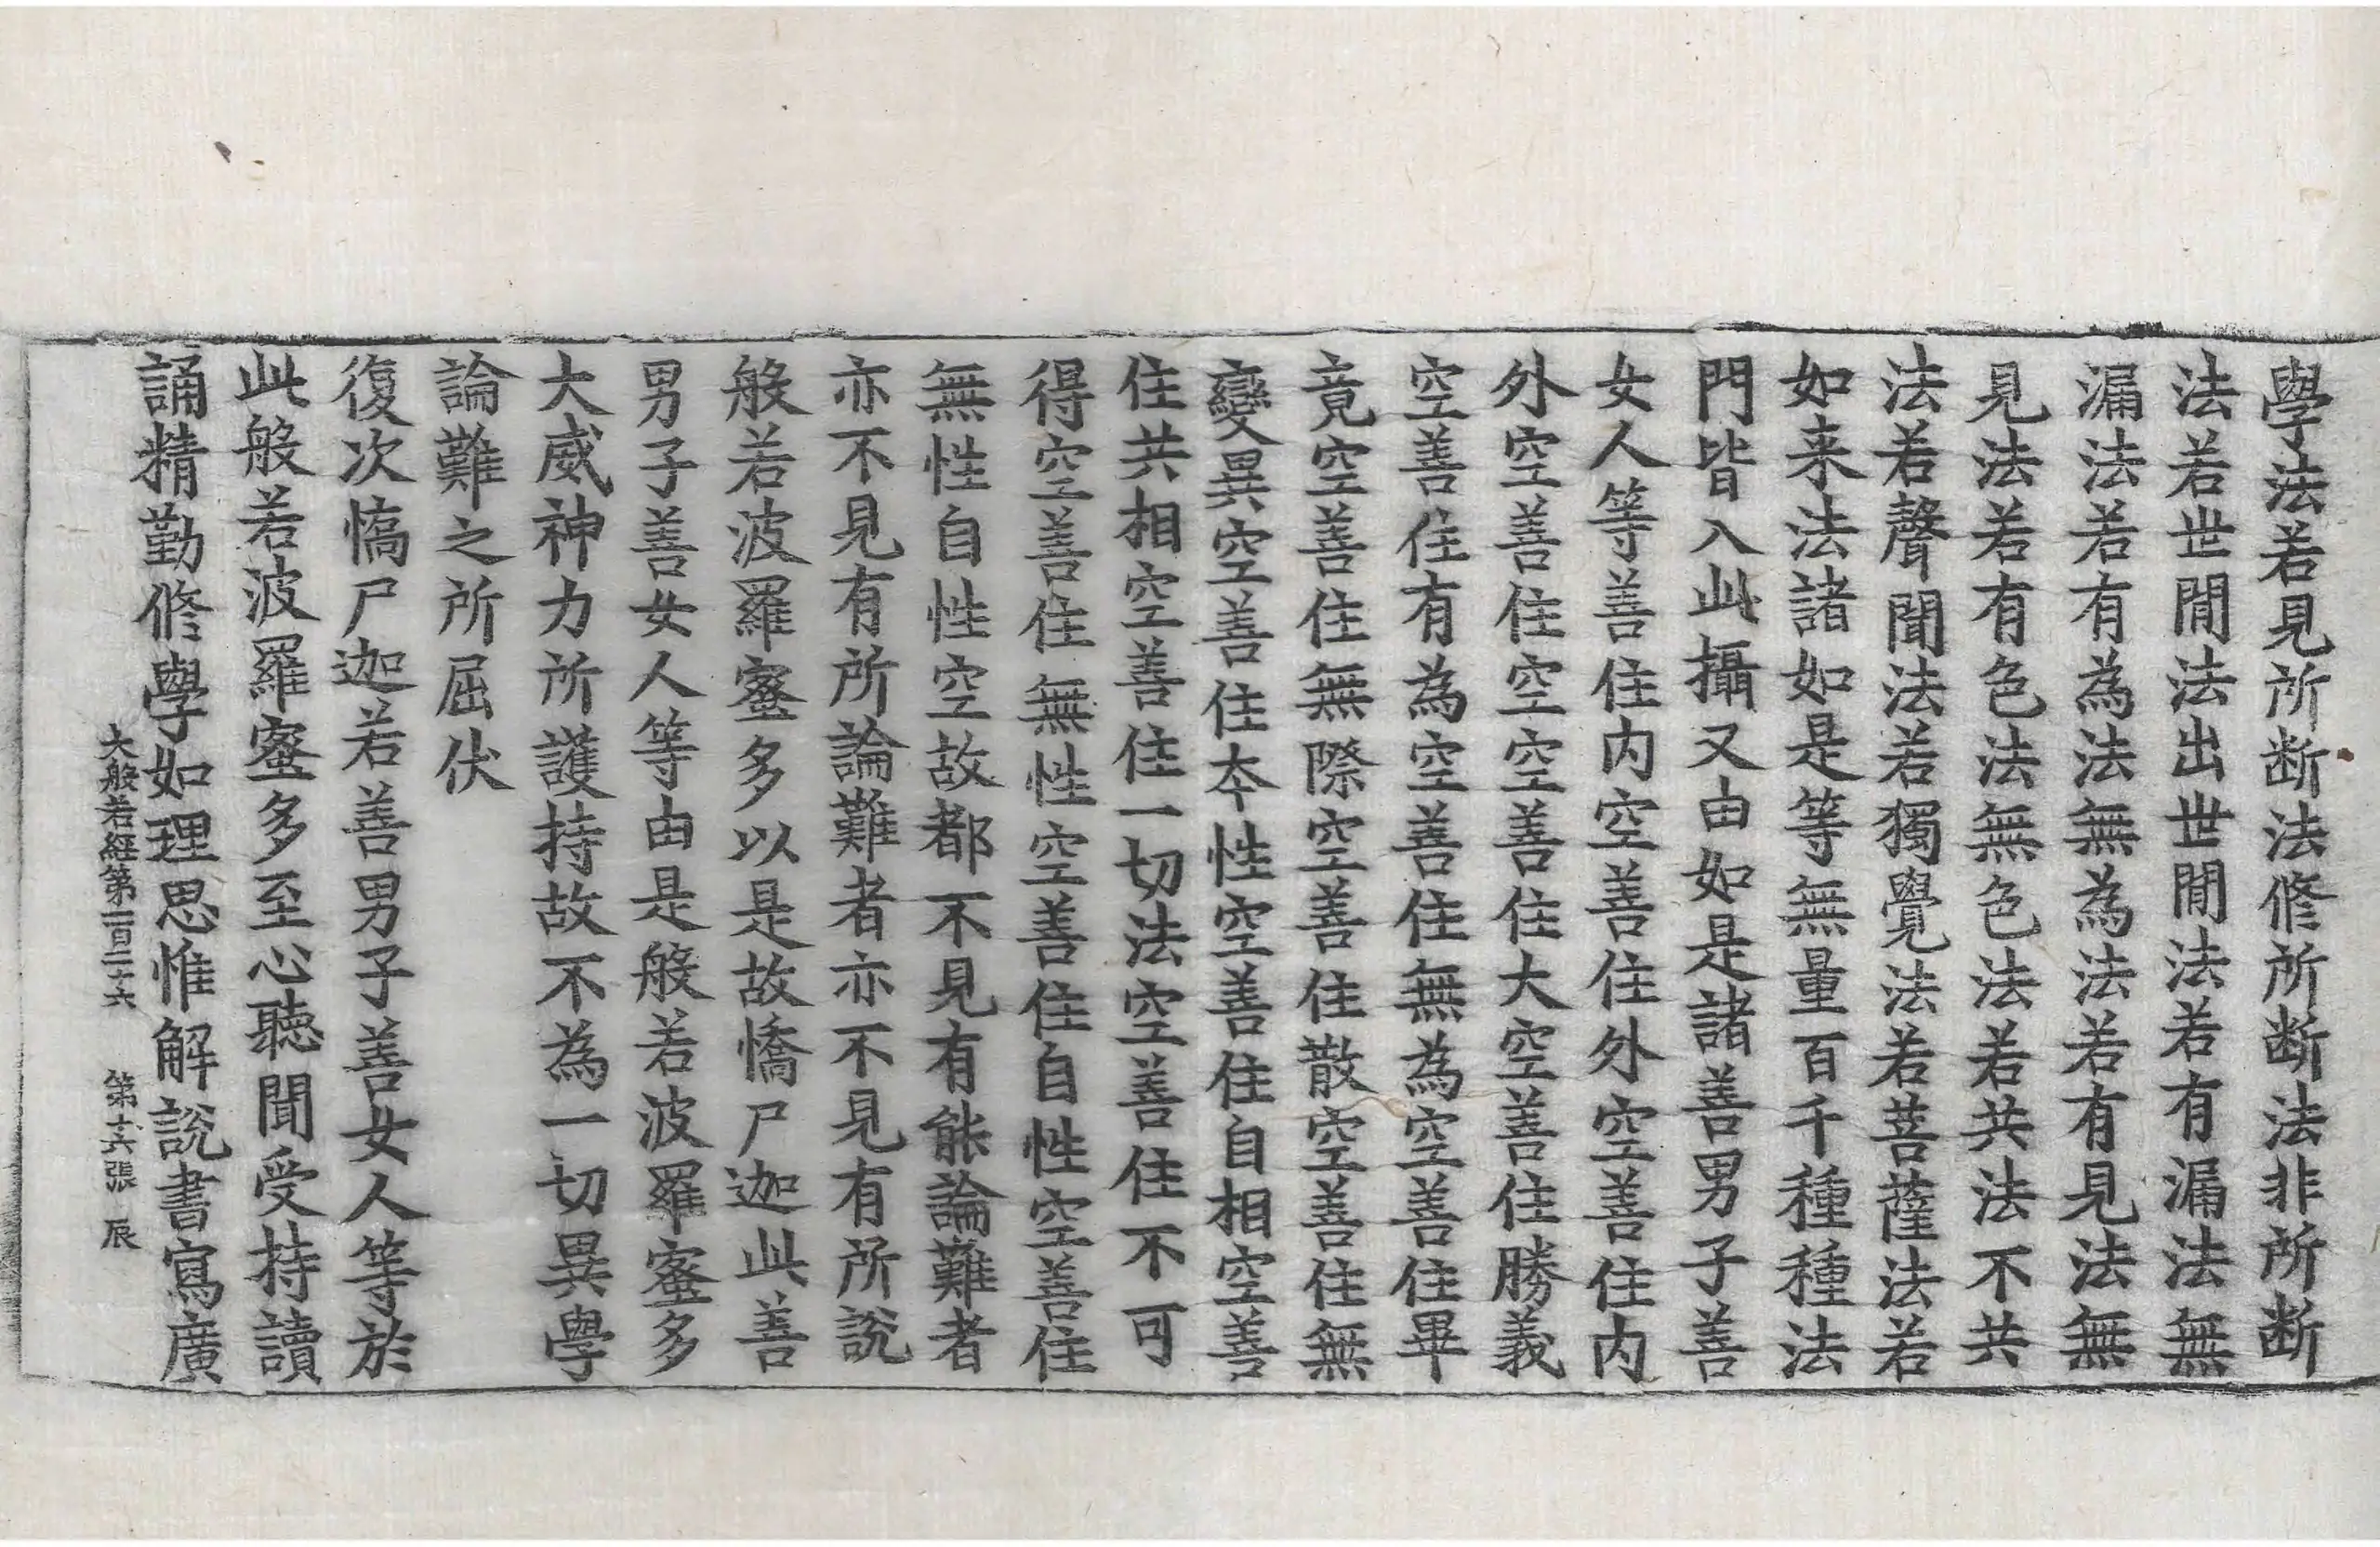 學法若見所断法修所断法非所断
法若世閒法出世閒法若有漏法無
漏法若有為法無為法若有見法無
見法若有色法無色法若共法不共
法若聲聞法若獨覺法若菩薩法若
如来法諸如是等無量百千種種法
門皆入此攝又由如是諸善男子善
女人等善住内空善住外空善住内
外空善住空空善住大空善住勝義
空善住有為空善住無為空善住畢
竟空善住無際空善住散空善住無
變異空善住夲性空善住自相空善
住共相空善住一切法空善住不可
得空善住無性空善住自性空善住
無性自性空故都不見有能論難者
亦不見有所論難者亦不見有所說
般若波羅蜜多以是故憍尸迦此善
男子善女人等由是般若波羅蜜多
大威神力所護持故不為一切異學
論難之所屈伏
復次憍尸迦若善男子善女人等於
此般若波羅蜜多至心聽聞受持讀
誦精勤修學如理思惟解說書寫廣
大般若經第一百二十六 第十六張 辰